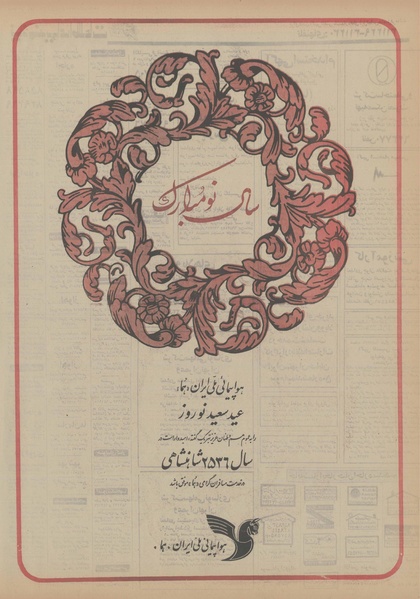 سال نو مبارک
هواپیمائی ملی ایران «هما»
عید سعید نوروز
را به عموم هم میهنان عزیز تبریک گفته، امیدوار است در
سال ۲۵۳۶ شاهنشاهی
در خدمت مسافرین گرامی و موفق باشد
هواپیمائی ملی ایران «هما»